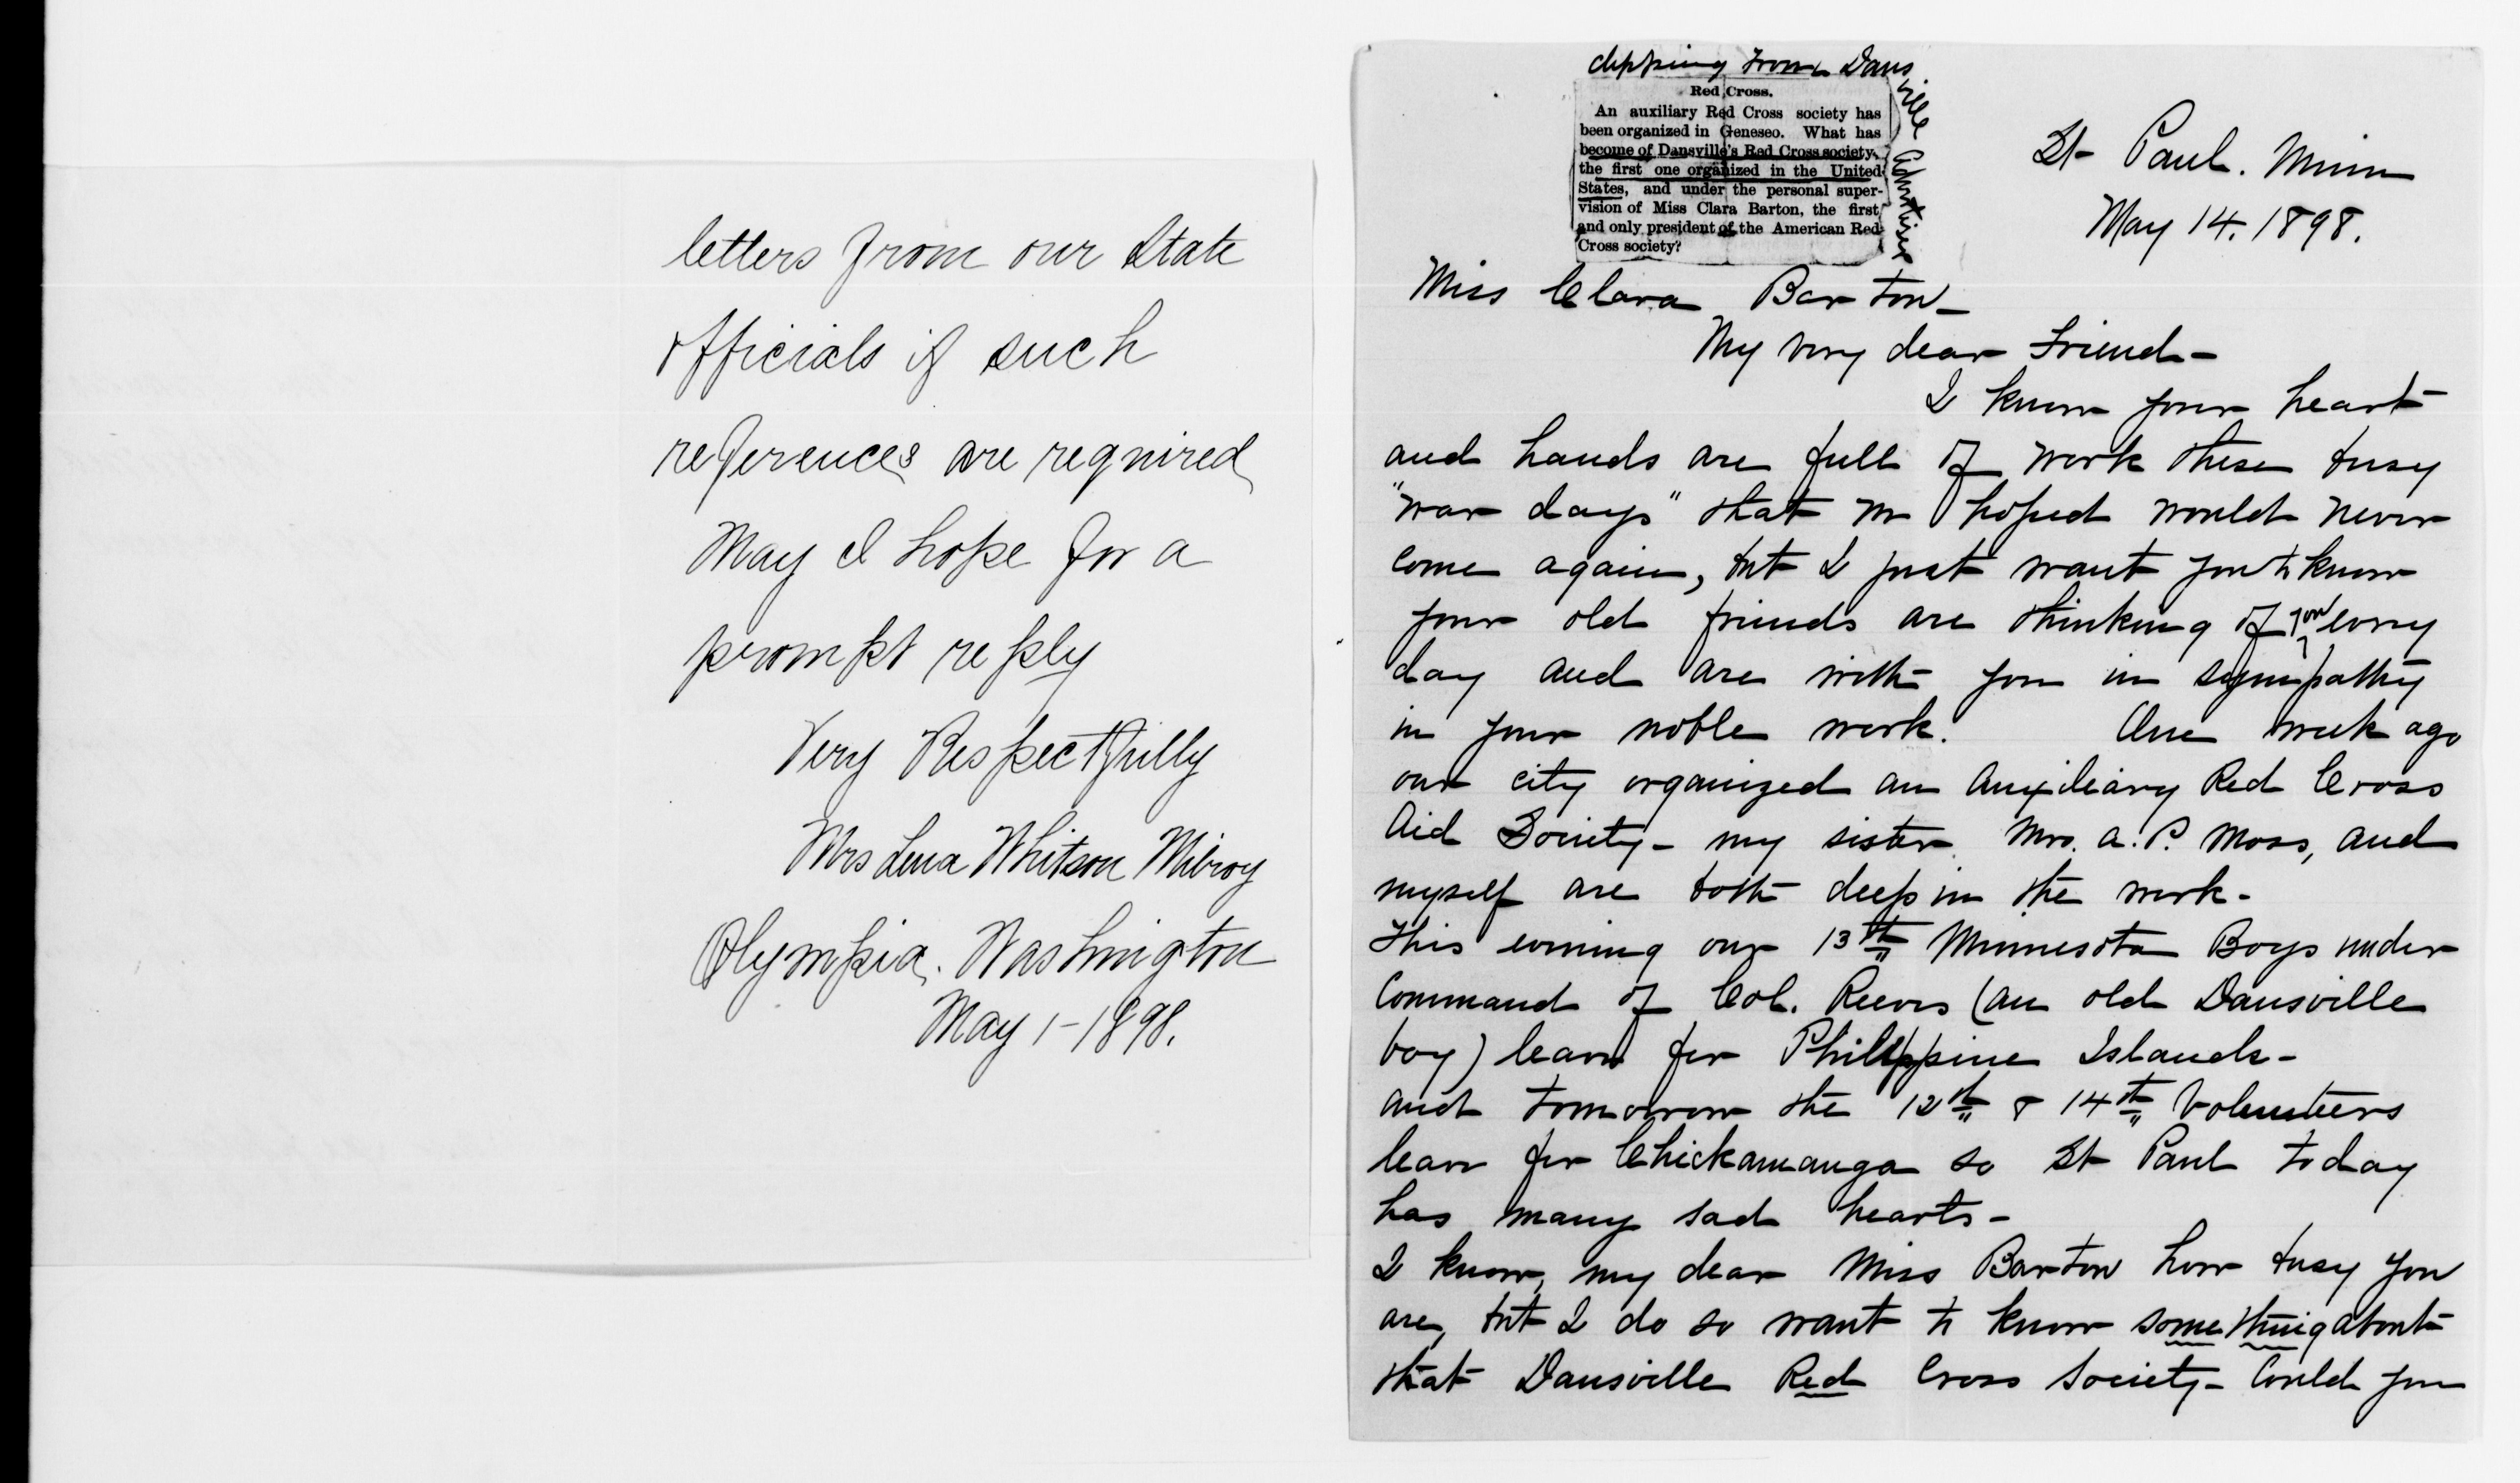 letters from our State
officials if such
references are required
May I hope for a
prompt reply
Very Respectfully
Mrs Lena Whitson Milroy
Olympia. Washington
May 1-1898.
clipping from Dansville Advertiser
Red Cross.
An auxiliary Red Cross society has
been organized in Geneseo. What has
become of Dansville's Red Cross society,
the first one organized in the United
States, and under the personal super-
vision of Miss Clara Barton, the first
and only president of the American Red
Cross society?
St Paul. Minn
May 14. 1898.
Miss Clara Barton_
My very dear Friend-
I know your heart
and hands are full of work these busy
"war days" that we hoped would never
come again, but I just want you to know
your old friends are thinking of you every
day and are with you in sympathy
in your noble work. One week ago
our city organized an Auxiliary Red Cross
Aid Society- my sister Mrs. A. P. Moss, and
myself are both deep in the work-
This evening our 13th Minnesota Boys under
Command of Col. Reeves (an old Dansville
boy) leave for Philippine Islands-
and tomorrow the 12th & 14th Volunteers
leave for Chickamauga so St Paul today
has many sad hearts-
I know, my dear Miss Barton how busy you
are, but I do so want to know something about
that Dansville Red Cross Society- Could you